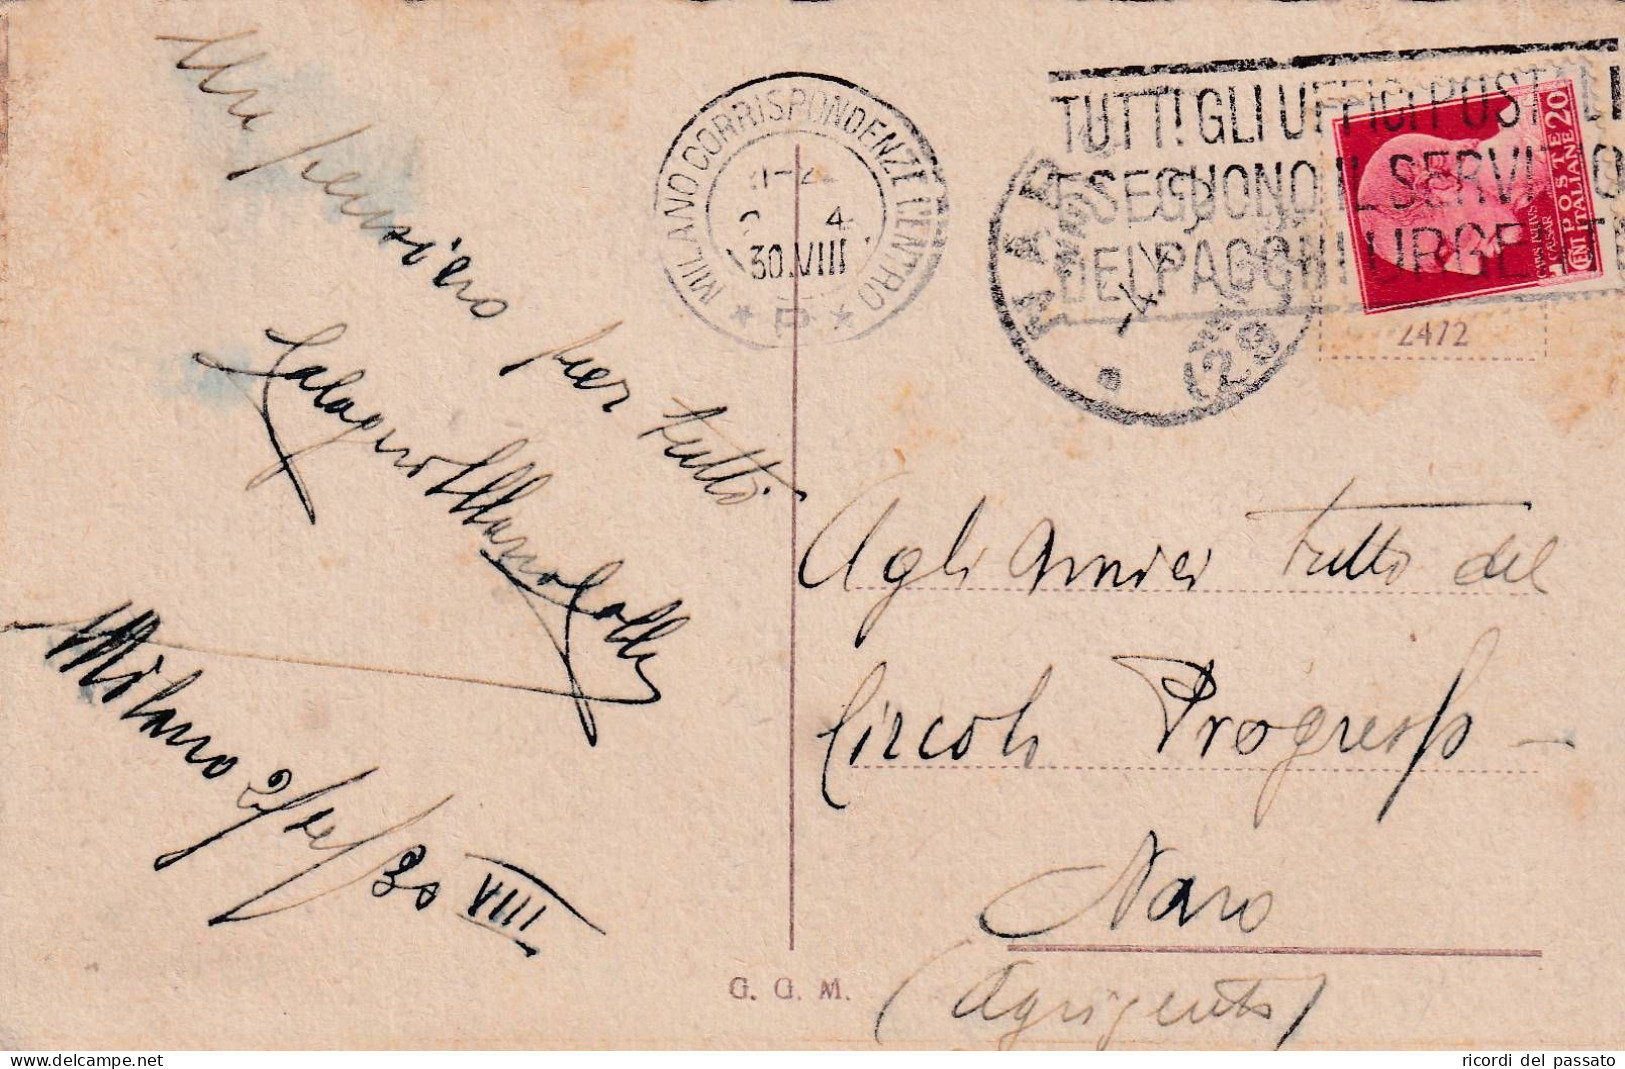 Un pensiero per tutti
Milano 2/ /30 VIII
MILANO CORRISPONDENZE CENTRO
4
30.VIII
P
TUTTI GLI UFFICI POSTALI
ESEGUONO IL SERVIZIO
DEI PACCHI URGENTI
NARO
-4.
POSTE
ITALIANE
CENT 20
2472
Agli Amici tutti del
Circolo Progresso -
Naro
(Agrigento)
G. G. M.
ricordi del passato
delcampe.net